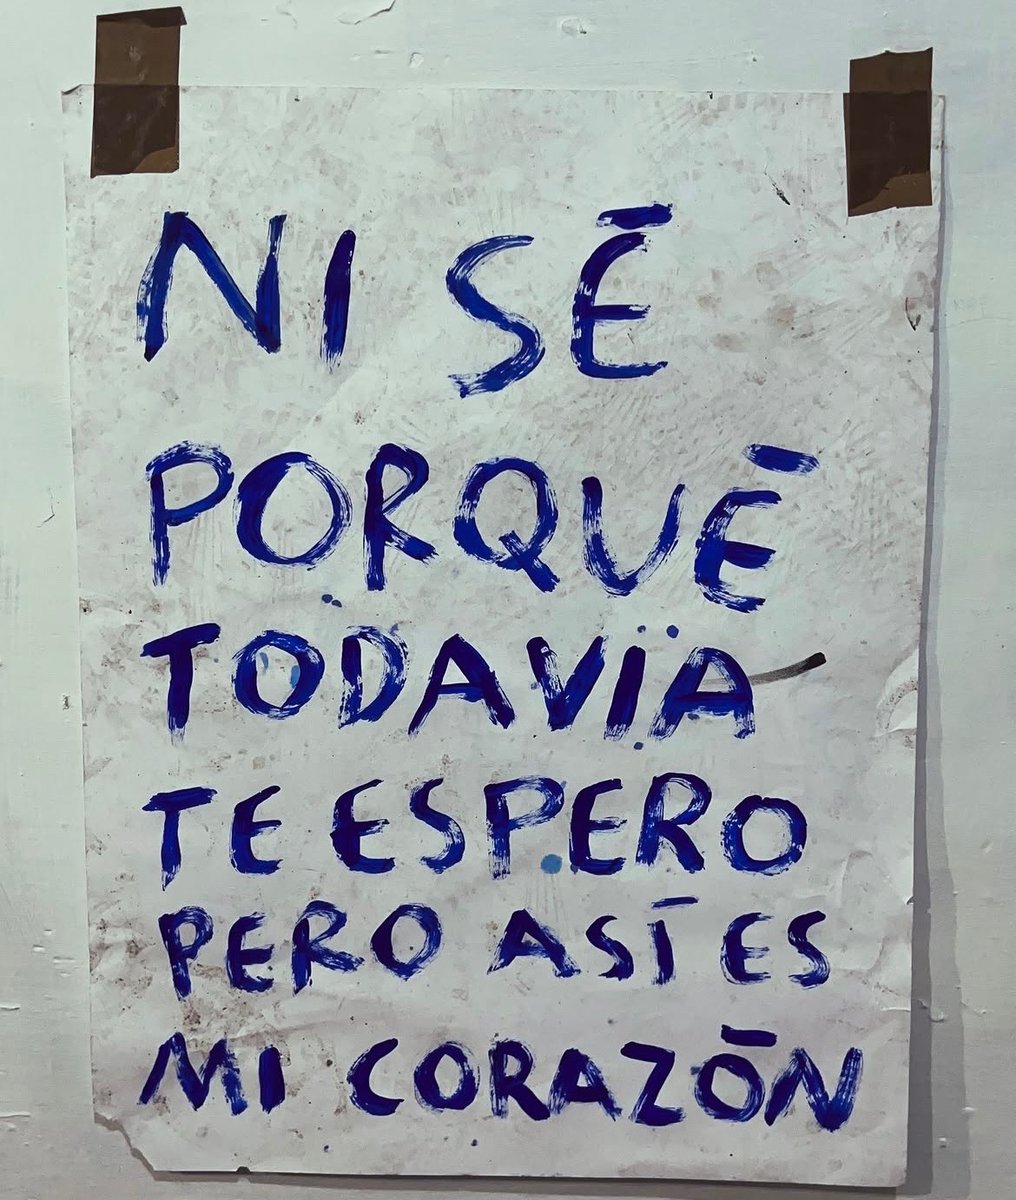 NI SÉ
PORQUÉ
TODAVÍA
TE ESPERO
PERO ASÍ ES
MI CORAZÓN